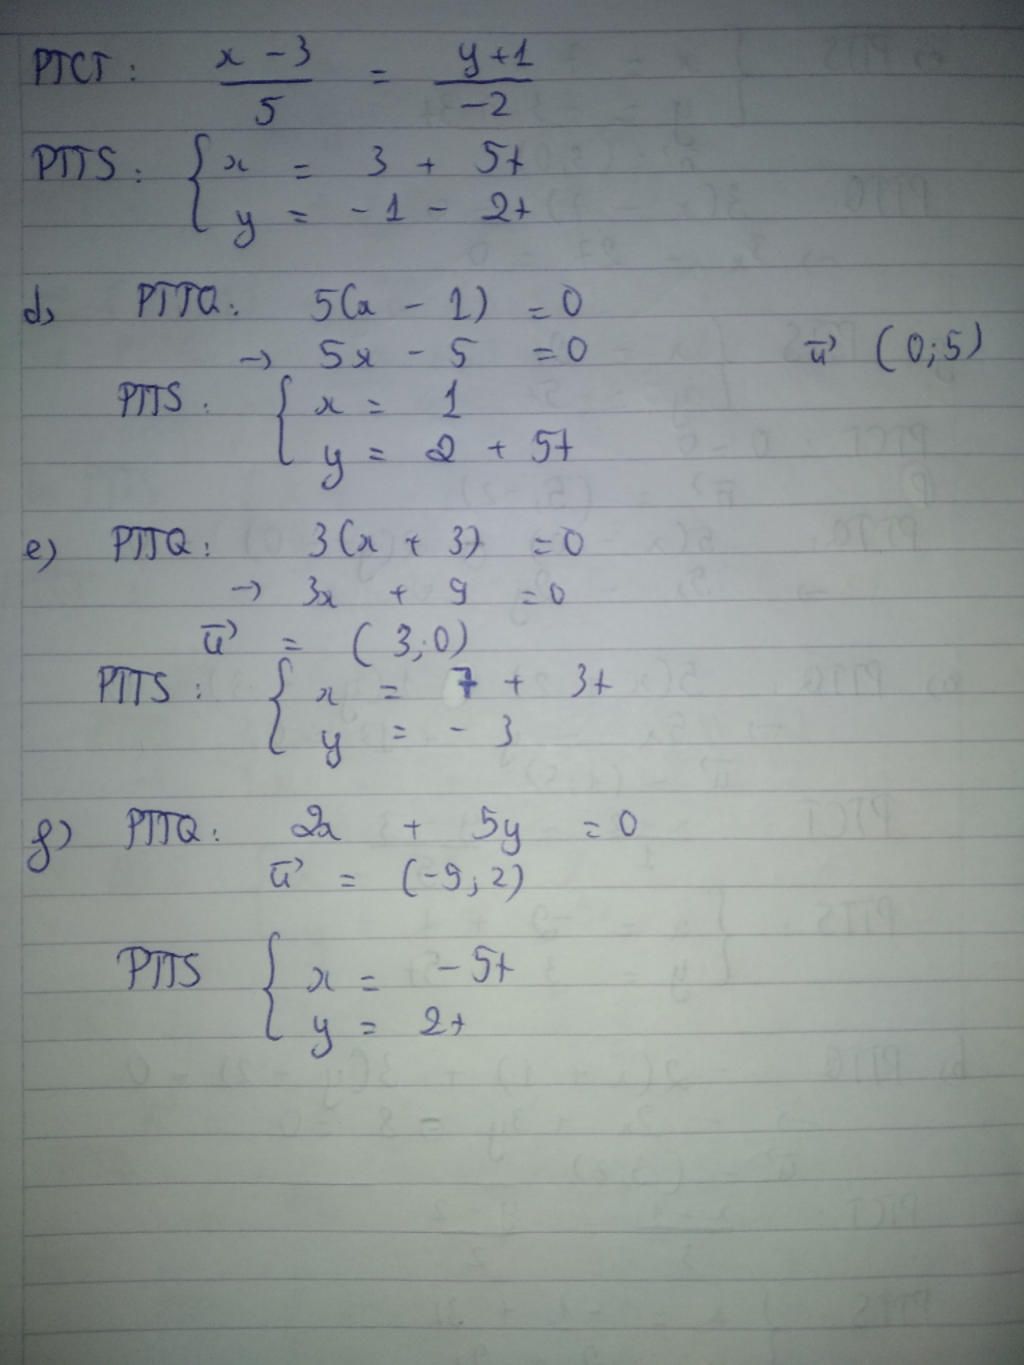 PTCT: x - 3 / 5 = y + 1 / -2
PTTS: { x = 3 + 5t
y = -1 - 2t
d, PTTQ: 5(x - 1) = 0
→ 5x - 5 = 0 u⃗ (0;5)
PTTS: { x = 1
y = 2 + 5t
e) PTTQ: 3(x + 3) = 0
→ 3x + 9 = 0
u⃗ = (3;0)
PTTS: { x = 7 + 3t
y = - 3
f) PTTQ: 2x + 5y = 0
u⃗ = (-9;2)
PTTS { x = -5t
y = 2t